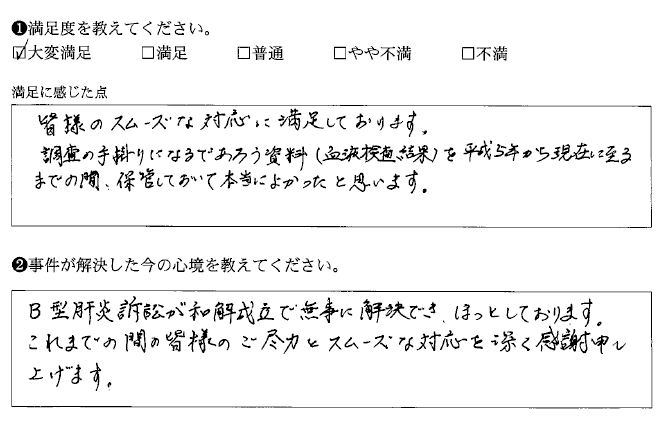 ❶満足度を教えてください。
☑大変満足 □満足 □普通 □やや不満 □不満
満足に感じた点
皆様のスムーズな対応に満足しております。
調査の手掛りになるであろう資料(血液検査結果)を平成5年から現在に至る
までの間、保管しておいて本当によかったと思います。
❷事件が解決した今の心境を教えてください。
B型肝炎訴訟が和解成立で無事に解決でき、ほっとしております。
これまでの間の皆様のご尽力とスムーズな対応を深く感謝申し
上げます。